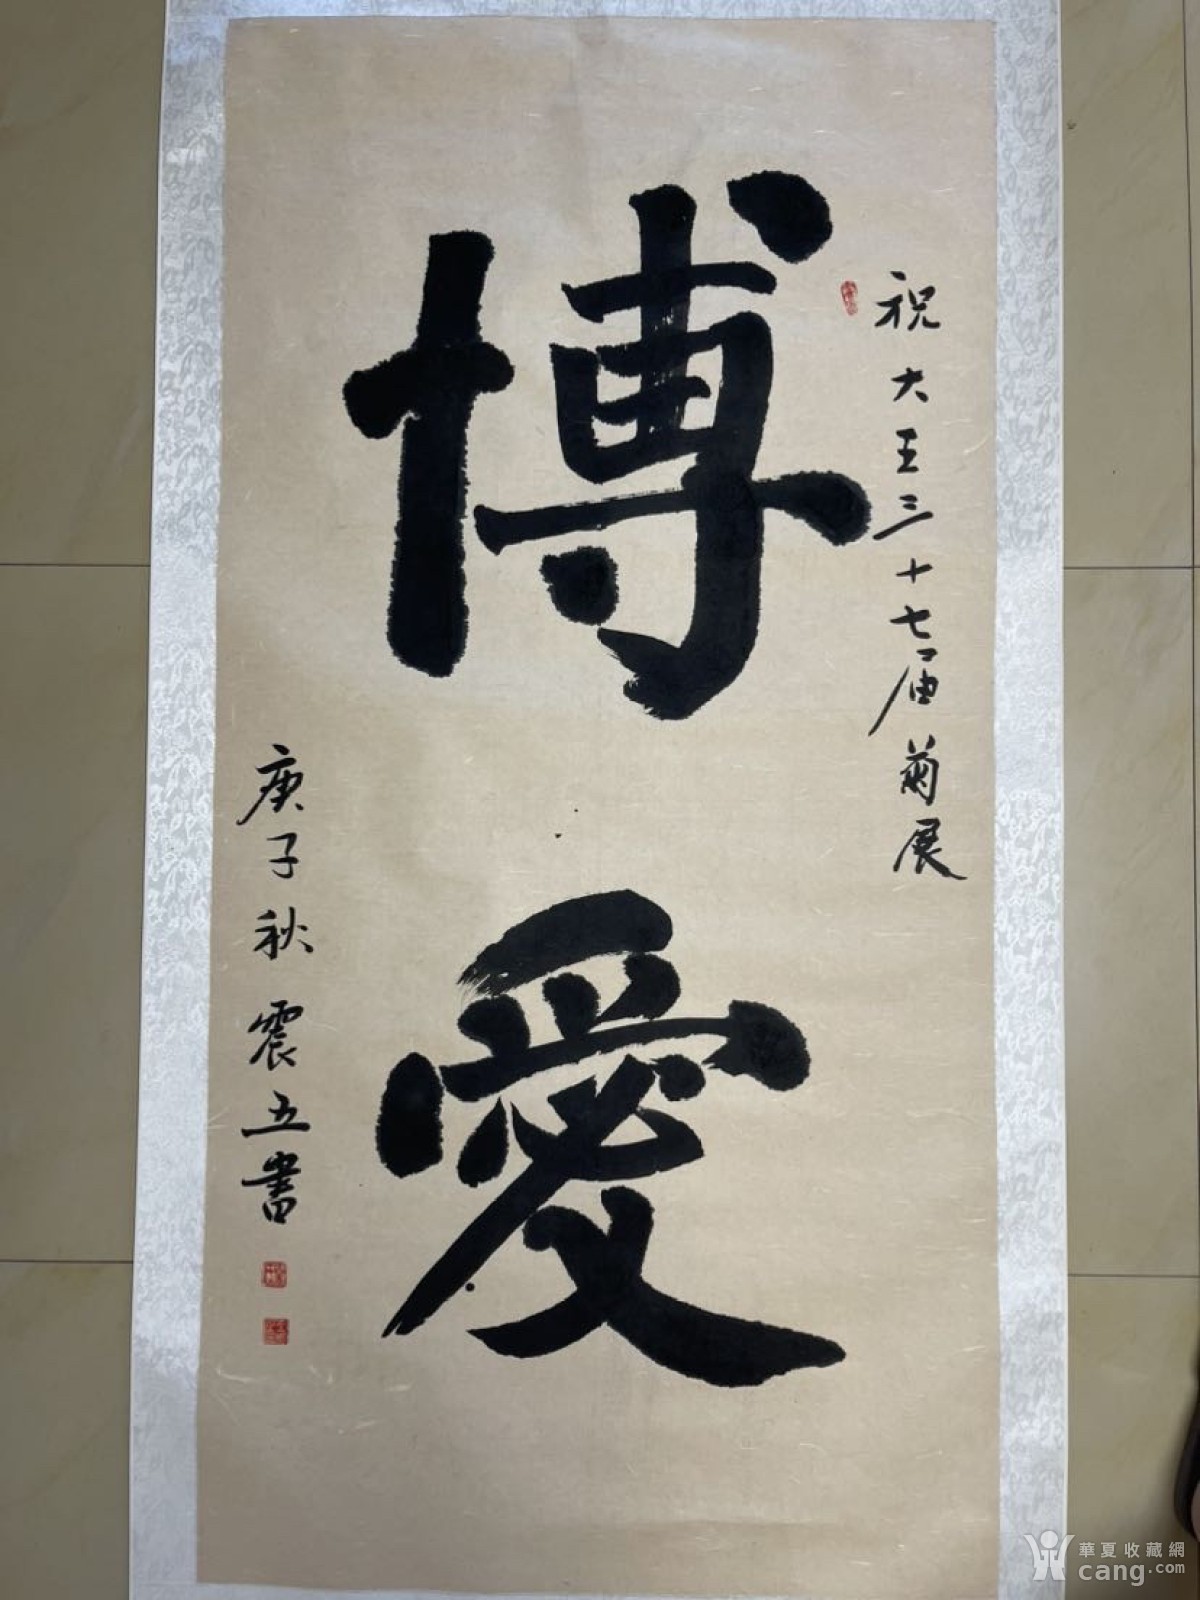 祝大王三十七届菊展
博愛
庚子秋震五書
華夏收藏網
cang.com